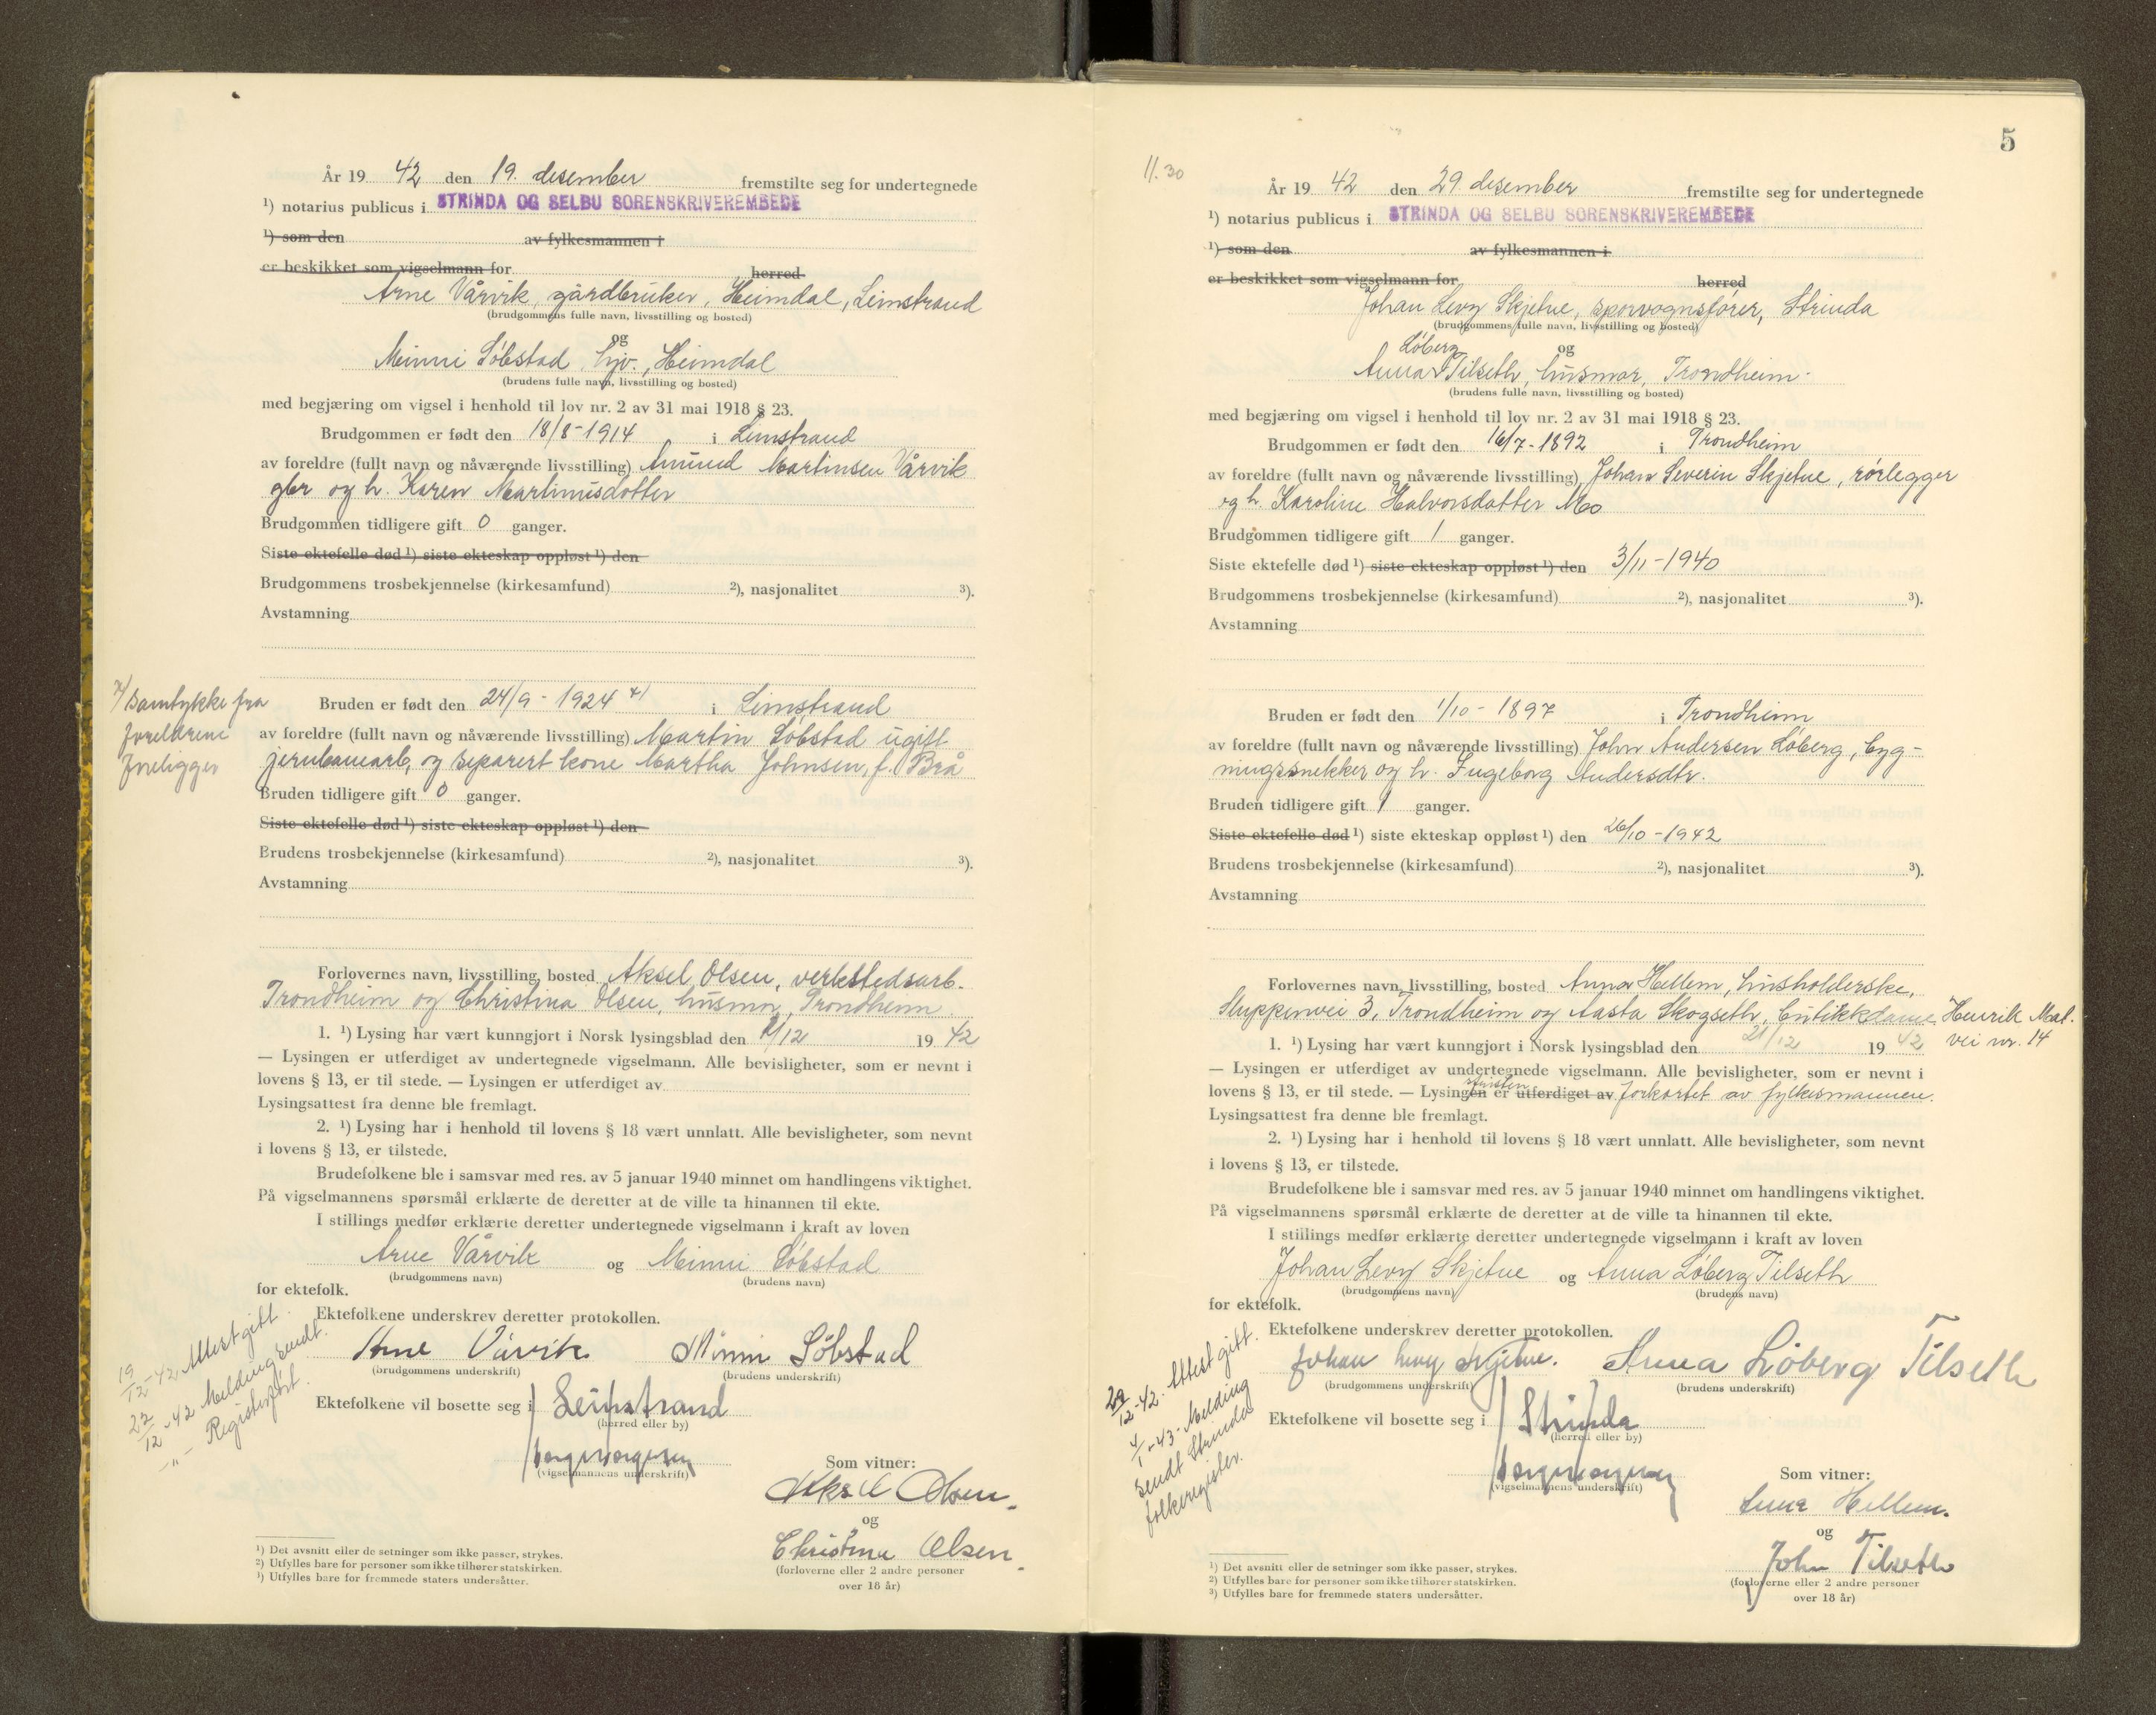 År 19 42 den 19. desember fremstilte seg for undertegnede
¹) notarius publicus i STRINDA OG SELBU SORENSKRIVEREMBEDE
¹) som den av fylkesmannen i
er beskikket som vigselmann for herred
Arne Vårvik, gårdbruker, Heimdal, Leinstrand
(brudgommens fulle navn, livsstilling og bosted)
og
Minni Søbstad, hjv., Heimdal
(brudens fulle navn, livsstilling og bosted)
med begjæring om vigsel i henhold til lov nr. 2 av 31 mai 1918 § 23.
Brudgommen er født den 18/8-1914 i Leinstrand
av foreldre (fullt navn og nåværende livsstilling) Amund Martinsen Vårvik
gbr og h. Karen Martinusdotter
Brudgommen tidligere gift 0 ganger.
Siste ektefelle død ¹) siste ekteskap oppløst ¹) den
Brudgommens trosbekjennelse (kirkesamfund) ²), nasjonalitet ³).
Avstamning
x/ Samtykke fra
foreldrene
foreligger
Bruden er født den 24/9 - 1924 x/ i Leinstrand
av foreldre (fullt navn og nåværende livsstilling) Martin Søbstad ugift
jernbanearb, og separert kone Martha Johnsen, f. Brå
Bruden tidligere gift 0 ganger.
Siste ektefelle død ¹) siste ekteskap oppløst ¹) den
Brudens trosbekjennelse (kirkesamfund) ²), nasjonalitet ³).
Avstamning
Forlovernes navn, livsstilling, bosted Aksel Olsen, verkstedsarb.
Trondheim og Christina Olsen, husmor, Trondheim.
1. ¹) Lysing har vært kunngjort i Norsk lysingsblad den /12 19 42
— Lysingen er utferdiget av undertegnede vigselmann. Alle bevisligheter, som er nevnt i
lovens § 13, er til stede. — Lysingen er utferdiget av
Lysingsattest fra denne ble fremlagt.
2. ¹) Lysing har i henhold til lovens § 18 vært unnlatt. Alle bevisligheter, som nevnt
i lovens § 13, er tilstede.
Brudefolkene ble i samsvar med res. av 5 januar 1940 minnet om handlingens viktighet.
På vigselmannens spørsmål erklærte de deretter at de ville ta hinannen til ekte.
I stillings medfør erklærte deretter undertegnede vigselmann i kraft av loven
Arne Vårvik og Minni Søbstad
(brudgommens navn) (brudens navn)
for ektefolk.
Ektefolkene underskrev deretter protokollen.
Arne Vårvik. Minni Söbstad
(brudgommens underskrift) (brudens underskrift)
Ektefolkene vil bosette seg i Leinstrand
(herred eller by)
(vigselmannens underskrift)
19/12-42 Attest gitt.
22/12-42 Melding sendt.
-"- Registerført.
Som vitner:
Aksel Olsen.
og
Christina Olsen.
(forloverne eller 2 andre personer
over 18 år)
¹) Det avsnitt eller de setninger som ikke passer, strykes.
²) Utfylles bare for personer som ikke tilhører statskirken.
³) Utfylles bare for fremmede staters undersåtter.
5
11.30
År 19 42 den 29. desember fremstilte seg for undertegnede
¹) notarius publicus i STRINDA OG SELBU SORENSKRIVEREMBEDE
¹) som den av fylkesmannen i
er beskikket som vigselmann for herred
Johan Levy Skjetne, sporvognsfører, Strinda
(brudgommens fulle navn, livsstilling og bosted)
Løberg og
Anna Tilseth, husmor, Trondheim.
(brudens fulle navn, livsstilling og bosted)
med begjæring om vigsel i henhold til lov nr. 2 av 31 mai 1918 § 23.
Brudgommen er født den 16/7-1892 i Trondheim
av foreldre (fullt navn og nåværende livsstilling) Johan Severin Skjetne, rørlegger
og h. Karoline Halvorsdatter Mo
Brudgommen tidligere gift 1 ganger.
Siste ektefelle død ¹) siste ekteskap oppløst ¹) den 3/11-1940
Brudgommens trosbekjennelse (kirkesamfund) ²), nasjonalitet ³).
Avstamning
Bruden er født den 1/10 - 1897 i Trondheim
av foreldre (fullt navn og nåværende livsstilling) John Andersen Løberg, byg-
ningssnekker og h. Ingeborg Andersdtr.
Bruden tidligere gift 1 ganger.
Siste ektefelle død ¹) siste ekteskap oppløst ¹) den 26/10-1942
Brudens trosbekjennelse (kirkesamfund) ²), nasjonalitet ³).
Avstamning
Forlovernes navn, livsstilling, bosted Anna Hellem, husholderske,
Sluppenvei 3, Trondheim og Aasta Skogseth, butikkdame, Henrik Mat.
vei nr. 14
1. ¹) Lysing har vært kunngjort i Norsk lysingsblad den 21/12 19 42
— Lysingen er utferdiget av undertegnede vigselmann. Alle bevisligheter, som er nevnt i
lovens § 13, er til stede. — Lysingen fristen er utferdiget av forkortet av fylkesmannen.
Lysingsattest fra denne ble fremlagt.
2. ¹) Lysing har i henhold til lovens § 18 vært unnlatt. Alle bevisligheter, som nevnt
i lovens § 13, er tilstede.
Brudefolkene ble i samsvar med res. av 5 januar 1940 minnet om handlingens viktighet.
På vigselmannens spørsmål erklærte de deretter at de ville ta hinannen til ekte.
I stillings medfør erklærte deretter undertegnede vigselmann i kraft av loven
Johan Levy Skjetne og Anna Løberg Tilseth
(brudgommens navn) (brudens navn)
for ektefolk.
Ektefolkene underskrev deretter protokollen.
Johan Levy Skjetne. Anna Löberg Tilseth
(brudgommens underskrift) (brudens underskrift)
Ektefolkene vil bosette seg i Strinda
(herred eller by)
(vigselmannens underskrift)
29/12-42. Attest gitt.
4/1-43. Melding
sendt Strinda
folkeregister.
Som vitner:
Anna Hellem.
og
John Tilseth
(forloverne eller 2 andre personer
over 18 år)
¹) Det avsnitt eller de setninger som ikke passer, strykes.
²) Utfylles bare for personer som ikke tilhører statskirken.
³) Utfylles bare for fremmede staters undersåtter.